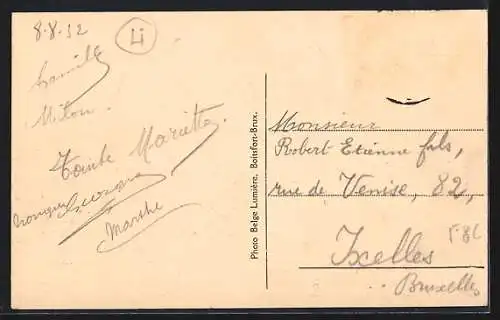 8-8-32
Li
Camille
Miton.
Tante Mariette.
Marthe
Photo Belge Lumière, Boitsfort-Brux.
Monsieur
Robert Etienne fils,
rue de Venise, 82,
Ixelles
Bruxelles